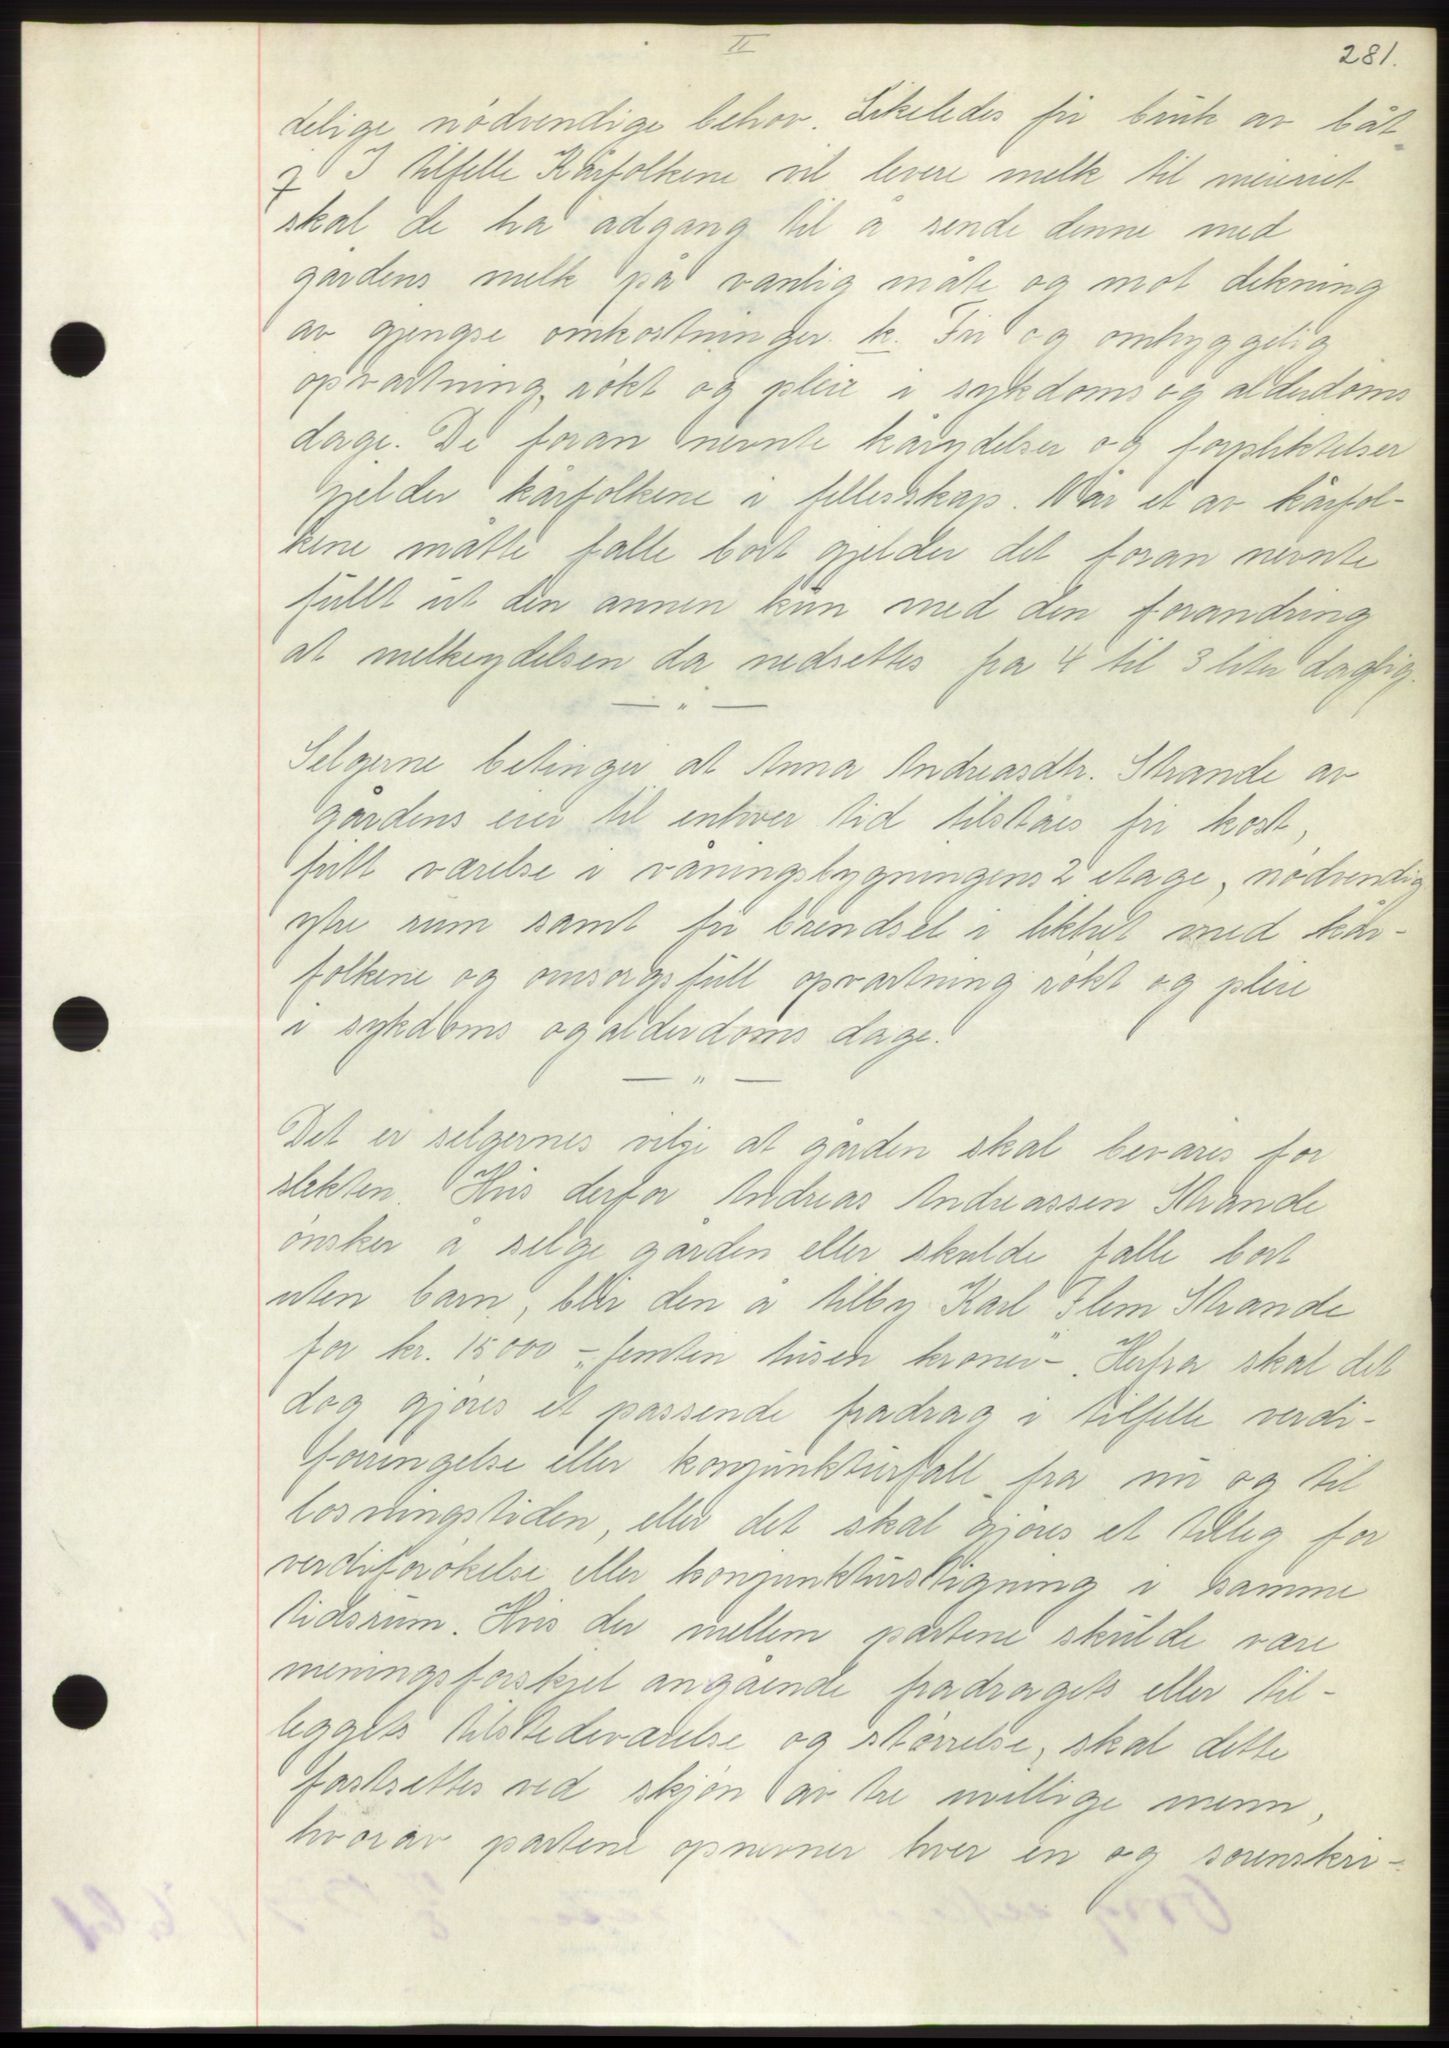 II
281.
delige nödvendige behov. Likeledes fri bruk av båt.
j I tilfelle Kårfolkene vil levere melk til meieriet
skal de ha adgang til å sende denne med
gårdens melk på vanlig måte og mot dekning
av gjengse omkostninger. k. Fri og omhyggelig
opvartning, rökt og pleie i sykdoms og alderdoms
dage. De foran nevnte kårydelser og forpliktelser
gjelder kårfolkene i fellesskap. Når et av kårfol-
kene måtte falle bort gjelder det foran nevnte
fullt ut den annen kun med den forandring
at melkeydelsen da nedsettes fra 4 til 3 liter daglig.
— " —
Selgerne betinger at Anna Andreasdtr. Strande av
gårdens eier til enhver tid tilståes fri kost,
fritt værelse i våningsbygningens 2 etage, nödvendig
ytre rum samt fri brendsel i likhet med kår-
folkene og omsorgsfull opvartning rökt og pleie
i sykdoms og alderdoms dage.
— " —
Det er selgernes vilje at gården skal bevares for
slekten. Hvis derfor Andreas Andreassen Strande
önsker å selge gården eller skulde falle bort
uten barn, blir den å tilby Karl Flem Strande
for kr. 15000 -„femten tusen kroner"-. Herfra skal det
dog gjöres et passende fradrag i tilfelle verdi-
forringelse eller konjunkturfall fra nu og til
lösningstiden, eller det skal gjöres et tilleg for
verdiforökelse eller konjunkturstigning i samme
tidsrum. Hvis der mellem partene skulde være
meningsforskjel angående fradragets eller til-
leggets tilstedeværelse og störrelse, skal dette
fastsettes ved skjön av tre uvillige menn,
hvorav partene opnevner hver en og sorenskri-